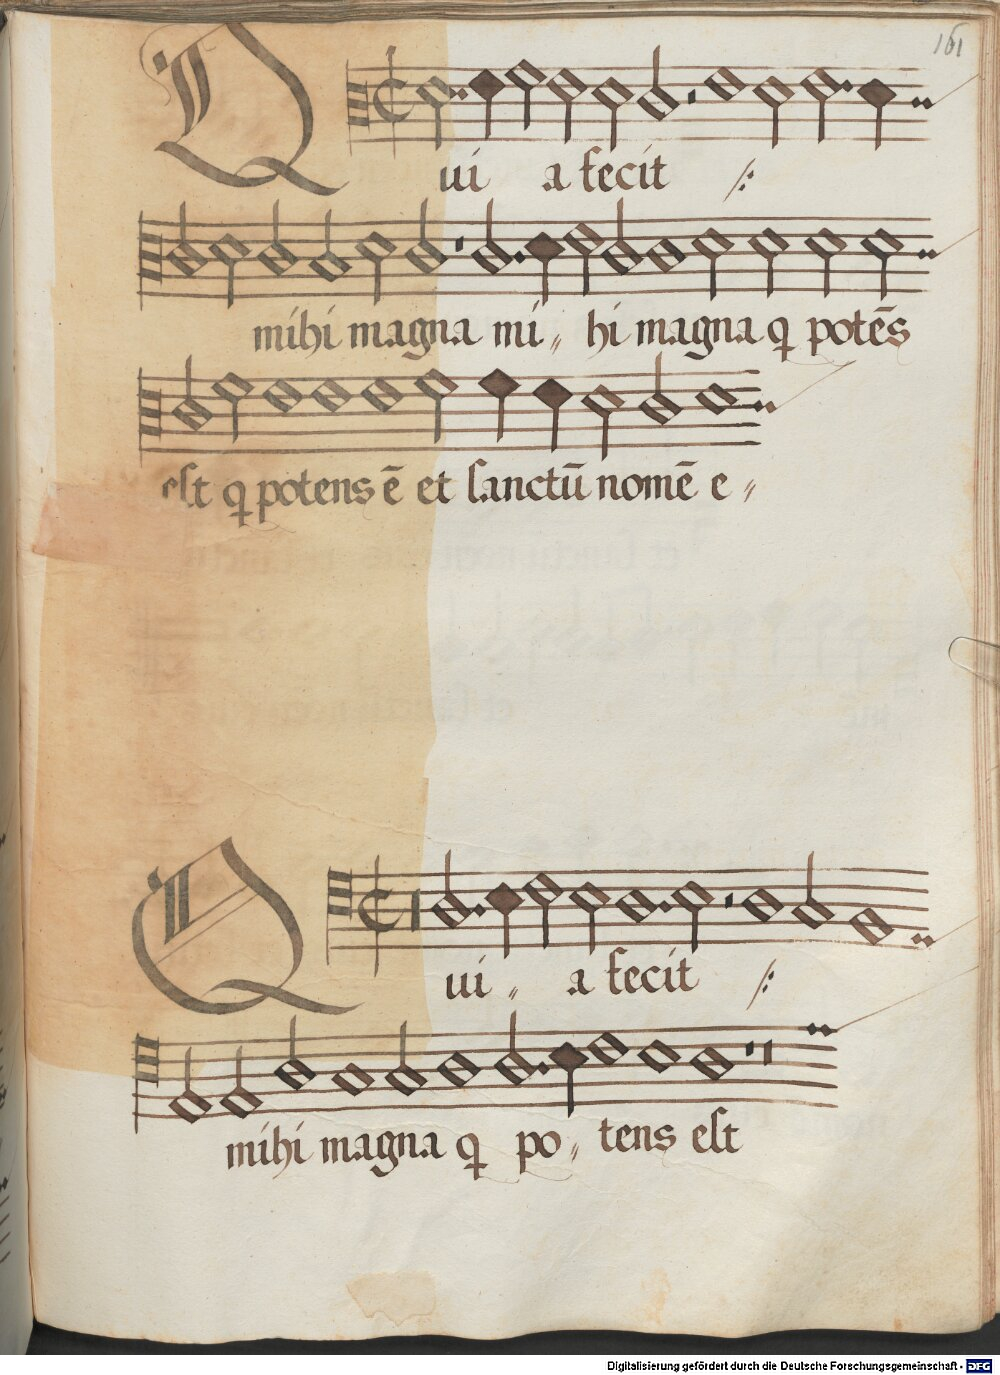 161
Quia fecit ⁒
mihi magna mi〃hi magna q potēs
est q potens ē et sanctū nomē e〃
Qui〃a fecit ⁒
mihi magna q po〃tens est
Digitalisierung gefördert durch die Deutsche Forschungsgemeinschaft - DFG